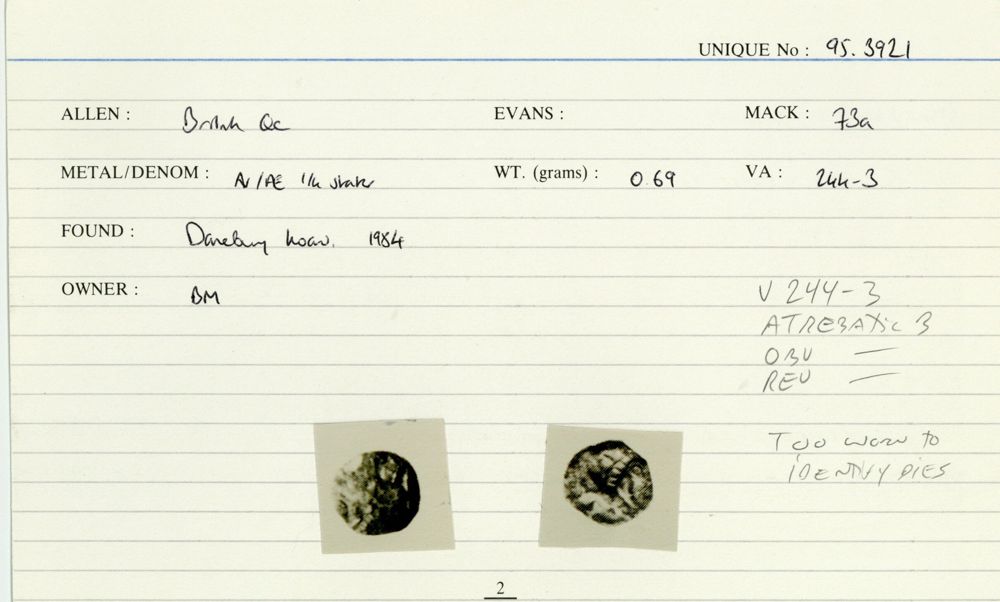 UNIQUE No : 95.3921
ALLEN : British Qc EVANS : MACK : 73a
METAL/DENOM : AV/AE 1/4 stater WT. (grams) : 0.69 VA : 244-3
FOUND : Danebury hoard. 1984
OWNER : BM
V 244-3
ATREBATIC B
OBV —
REV —
TOO WORN to
IDENTIFY DIES
2